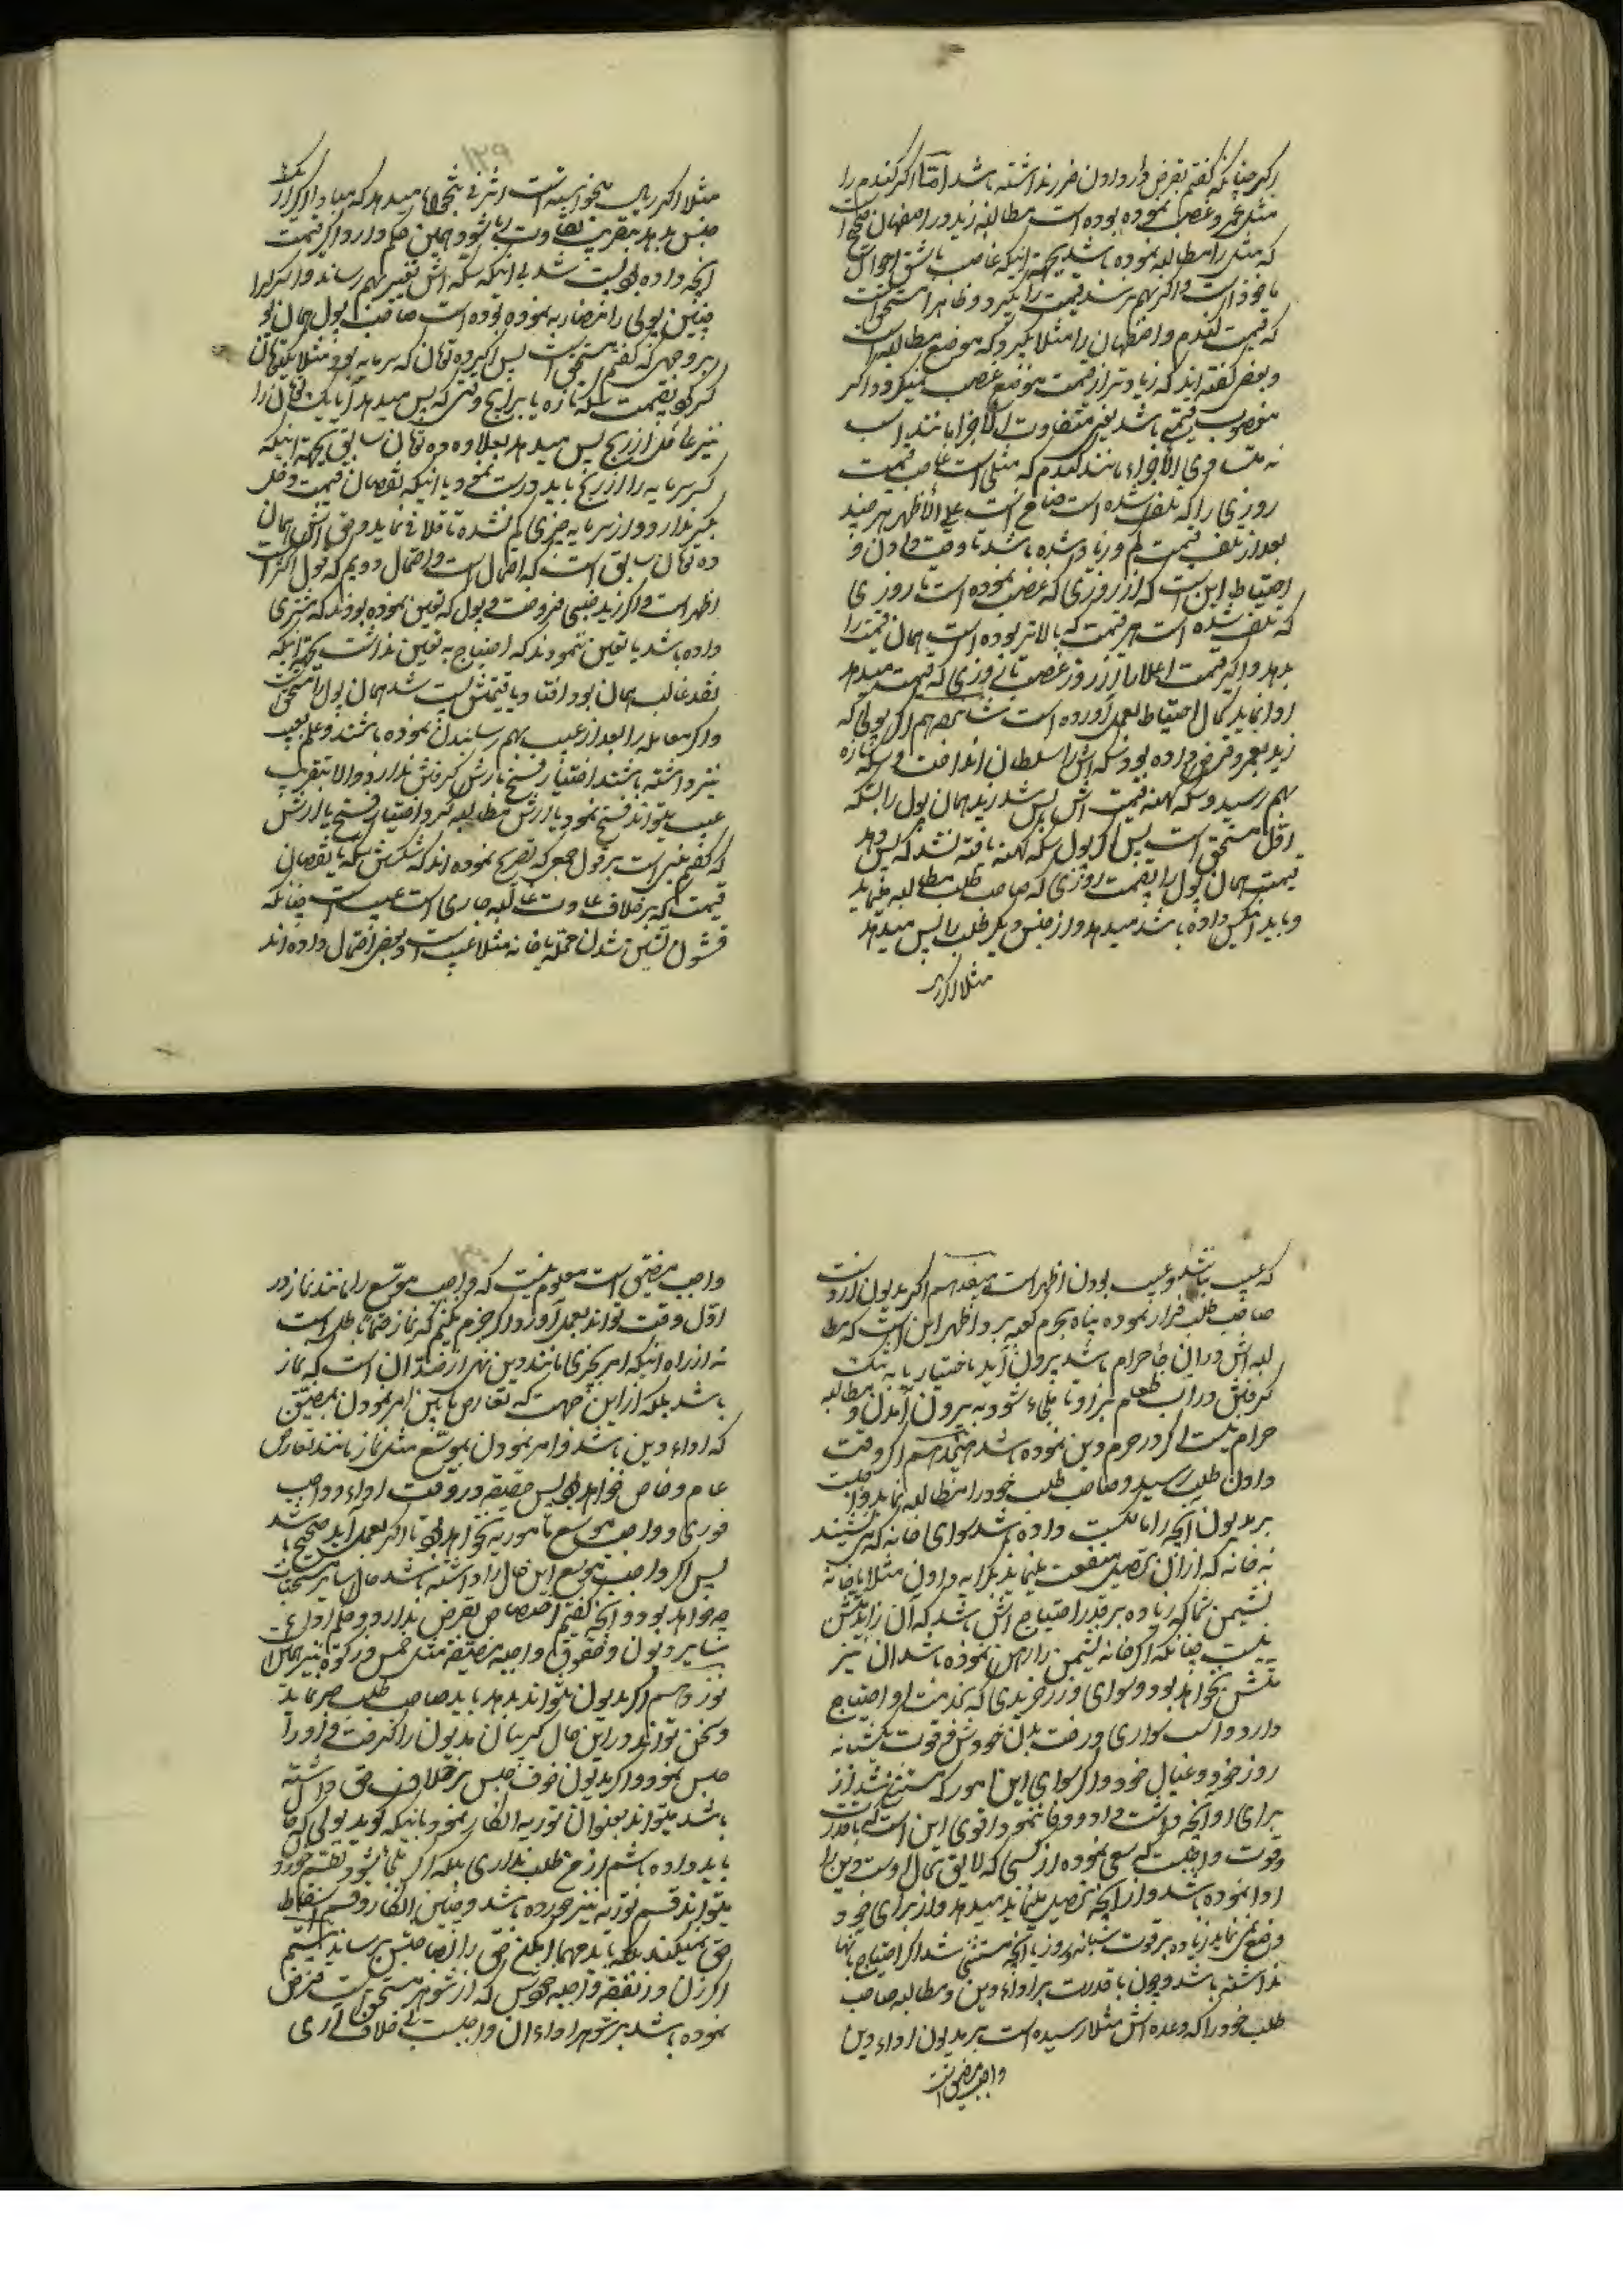 اگر چنانکه گفتم بقرض دار دادن ضرر نداشته باشد اما اگر گندم را
مثلی عمرو غصب نموده بوده است مطالبه زید در اصفهان صحیح است
که مثل را مطالبه نموده باشد بجهة اینکه غاصب باشق احوال
ماخوذ است و اگر بهم نرسد قیمت را بگیرد و ظاهرا مستحق است
که قیمت گندم در اصفهان را مثلا بگیرد که موضع مطالبه است
و بعض گفته اند که زیادتر از قیمت موضع غصب نمیگیرد و اگر
مغصوب قیمتی باشد یعنی متفاوت الاجزا مانند اسب
نه متساوی الاجزاء مانند گندم که مثلی است غاصب قیمت
روزی را که تلف شده است ضامن است علی الأظهر هر چند
بعد از تلف قیمت کم و زیاد شده باشد تا وقت دادن و
احتیاط این است که از روزی که غصب نموده است تا روزی
که تلف شده است هر قیمت که بالاتر بوده است همان قیمت را
بدهد و اگر قیمت اعلا را از روز غصب تا روزی که قیمت میدهد
ادا نماید کمال احتیاط بعمل آورده است شانزدهم اگر پولی که
زید بعمرو قرض داده بود سکه اش را سلطان انداخت و سکه تازه
بهم رسید و سکه کهنه قیمت اش پس شد زید همان پول را بسکه
اول مستحق است پس اگر پول سکه کهنه یافته نشد که پس دهد
قیمت همان پول را بقیمت روزی که صاحب طلب مطالبه مینماید
و باید از جنس داده باشد میدهد و از جنس دیگر طلب را پس میدهد
مثلا اگر
۱۲۹
مثلا اگر ریال میخواسته است اشرفی پنجهزار میدهد که مبادا اگر از یک
جنس بدهد بتقریب تفاوت ربا شود و همین حکم دارد اگر قیمت
آنچه داده بود پست شد بی اینکه سکه اش تغییر بهم رساند و اگر کرا
چنین پولی را مضاربه نموده بوده است صاحب پول همان پول
بر وجهی که گفتم مستحق است پس اگر ده تومان که سرمایه بود مثلا یکتومان
کسر کرد بقیمت سکه تازه یا برایج وقتی که پس میدهد آیا یک تومان را
نیز عامل از ربح پس میدهد بعلاوه ده تومان سابق بجهة اینکه
کسر سرمایه را از ربح باید درست نمود یا اینکه نقصان قیمت دخل
بکسر ندارد و از سرمایه چیزی کم نشده تا تلافی نماید و حق اش همان
ده تومان سابق است که احتمال است و احتمال دویم که قول اکثر است
اظهر است و اگر زید جنسی فروخت و پول که تعین نموده بودند که مشتری
داده باشد یا تعین ننمودند که احتیاج به تعین نداشت بجهة اینکه
نقد غالب همان بود افتاد و یا قیمتش پست شد همان پول را مستحق است
و اگر معامله را بعد از عیب بهم رسانیدن نموده باشند و علم بعیب
نیز داشته باشند اختیار فسخ یا ارش گرفتن ندارد و الا بتقریب
عیب میتواند فسخ نمود یا ارش مطالبه کرد و اختیار فسخ یا ارش
که گفتم مبنی است بر قول جمعی که تصریح نموده اند که شکستن سکه یا نقصان
قیمت که بر خلاف عادت غالبه جاری است عیب است چنانکه
قشون نشین شدن محله یا خانه مثلا عیب است و بعض احتمال داده اند
که عیب باشد و عیب بودن اظهر است هفدهم اگر مدیون از دست
صاحب طلب فرار نموده پناه بحرم کعبه برد اظهر این است که مطا
لبه اش در آن جا حرام باشد بیرون آید باختیار یا به تنگ
گرفتن در آب و طعام بر او تا ملجاء شود به بیرون آمدن و مطالبه
حرام نیست اگر در حرم دین نموده باشد هیجدهم اگر وقت
دادن طلب رسید و صاحب طلب خود را مطالبه نماید واجب است
بر مدیون آنچه را مالکست داده باشد سوای خانه که می نشیند
نه خانه که از آن تحصیل منفعت مینماید بکرایه دادن مثلا یا خانه
نشیمن شما که زیاده بر قدر احتیاج اش باشد که آن زاید مستثنی
نیست چنانکه اگر خانه نشیمن را رهن نموده باشد آن نیز
مستثنی نخواهد بود و سوای زرخریدی که بخدمت او احتیاج
دارد و اسب سواری و رخت بدن خودش و قوت یکشبانه
روز خود و عیال خود و اگر سوای این امور که مستثنی شد از
برای او آنچه داشت داد و وفا ننمود اقوی این است که با قدرت
و قوت واجبست که سعی نموده از کسبی که لایق بحال اوست دین را
ادا نموده باشد و از آنچه تحصیل مینماید میدهد و از برای خود
وضع نمی نماید زیاده بر قوت شبانه روز یا آنچه مستثنی شد اگر احتیاج بآنها
نداشته باشد و چون با قدرت بر اداء دین و مطالبه صاحب
طلب خود را که وعده اش مثلا رسیده است بر مدیون اداء دین
واجب مضیق است
واجب مضیق است معلوم نیست که واجب موسع را مانند نماز در
اول وقت تواند بعمل آورد و اگر جزم نکنیم که نماز حتما باطل است
نه از راه اینکه امر بچیزی مانند دین نهی از ضد آن است که نماز
باشد بلکه از این جهت که تعارض ما بین امر نمودن بمضیق
که اداء دین باشد و امر نمودن بموسع مثل نماز مانند تعارض
عام و خاص خواهد بود پس حقیقة در وقت اداء واجب
فوری و واجب موسع مامور به نخواهد بود تا اگر بعمل آید صحیح باشد
پس اگر واجب موسع این حال را داشته باشد حال سایر مستحبات
چه خواهد بود و آنچه گفتم اختصاص بقرض ندارد و حکم ادای
سایر دیون و حقوق واجبه مضیقه مثل خمس و زکوة نیز همین است
نوزدهم اگر مدیون نتواند بدهد باید صاحب طلب صبر نماید
و نمی تواند در این حال گریبان مدیون را گرفت و او را
حبس نمود و اگر مدیون خوف حبس بر خلاف حق داشته
باشد میتواند بعنوان توریه انکار نمود باینکه گوید پولی که حالا
باید داده باشم از من طلب نداری بلکه اگر ملجاء شود بقسم خوردن
میتواند قسم توریه نیز خورده باشد و چنین انکار و قسم اسقاط
حق نمیکند بلکه باید مهما امکن حق را بصاحبش برساند بیستم
اگر زن در نفقه واجبه خودش که از شوهر مستحق است قرض
نموده باشد بر شوهر اداء آن واجبست بی خلاف آری